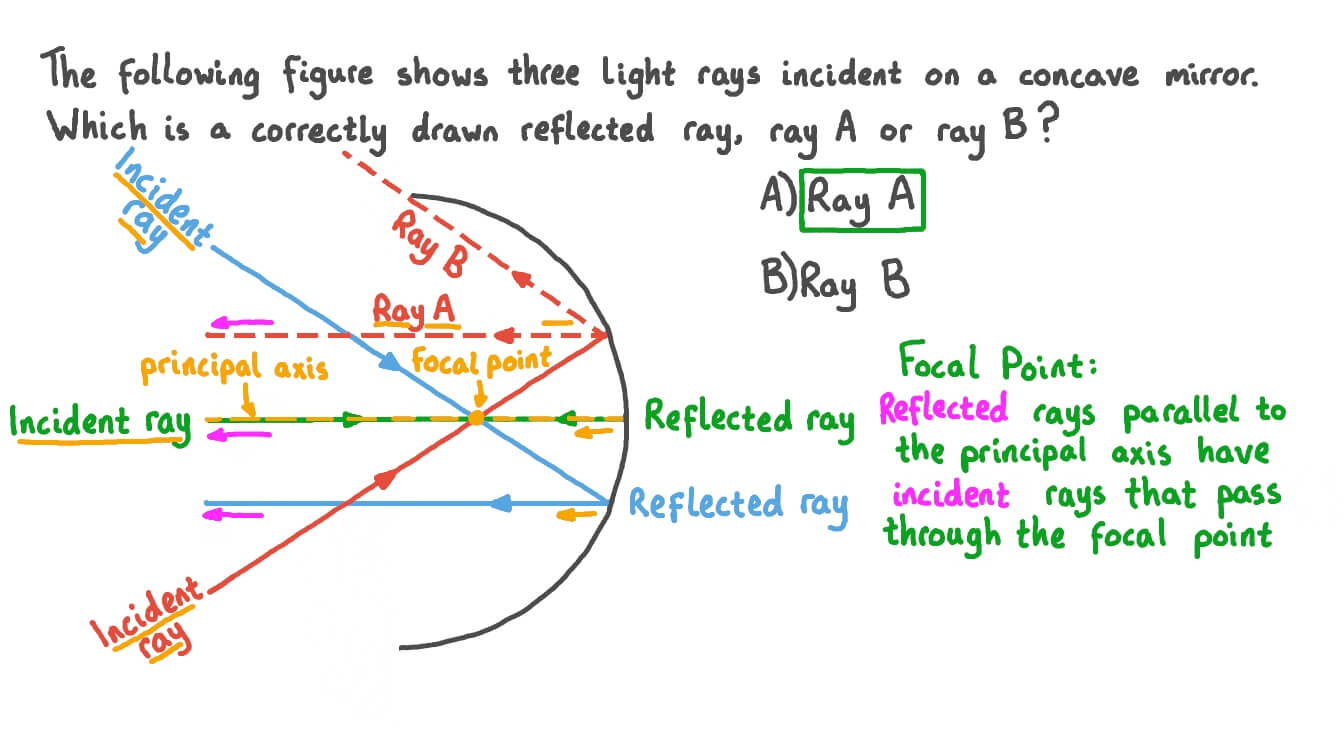 The following figure shows three light rays incident on a concave mirror.
Which is a correctly drawn reflected ray, ray A or ray B?
A) Ray A
B) Ray B
Incident
ray
Ray B
Ray A
principal axis
focal point
Incident ray
Reflected ray
Reflected ray
Incident
ray
Focal Point:
Reflected rays parallel to
the principal axis have
incident rays that pass
through the focal point